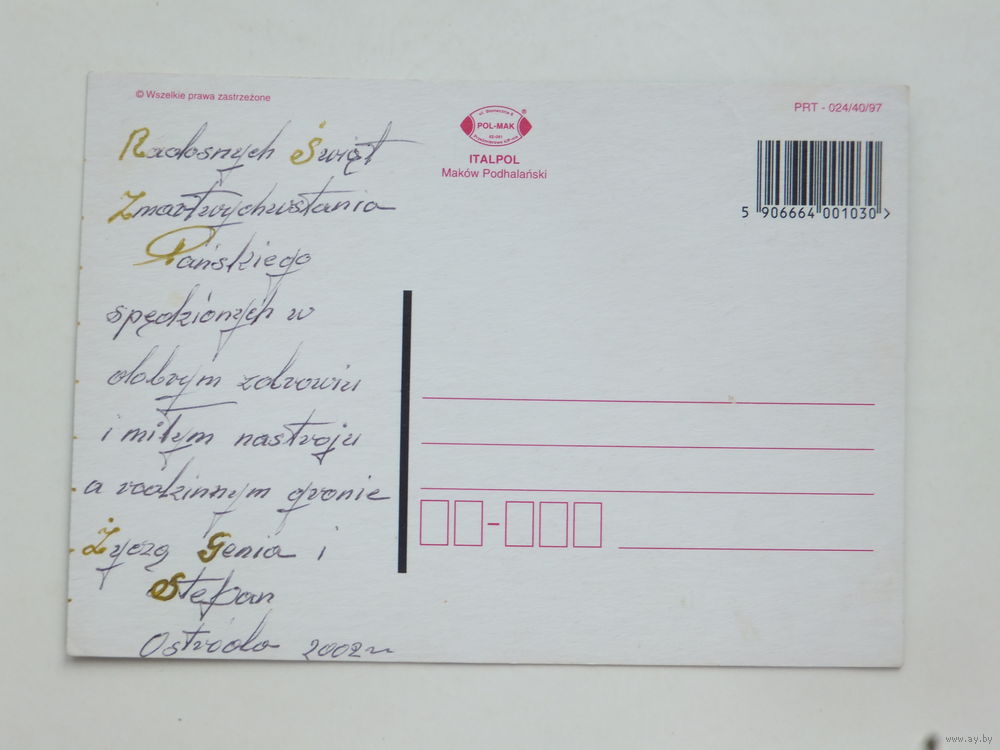 © Wszelkie prawa zastrzeżone
POL-MAK
®
ITALPOL
Maków Podhalański
PRT - 024/40/97
5 906664 001030 >
Radosnych Świąt
Zmartwychwstania
Pańskiego
spędzionych w
dobrym zdrowiu
i miłym nastroju
a rodzinnym gronie
Życzą Genia i
Stefan
Ostróda 2002r
www.ay.by